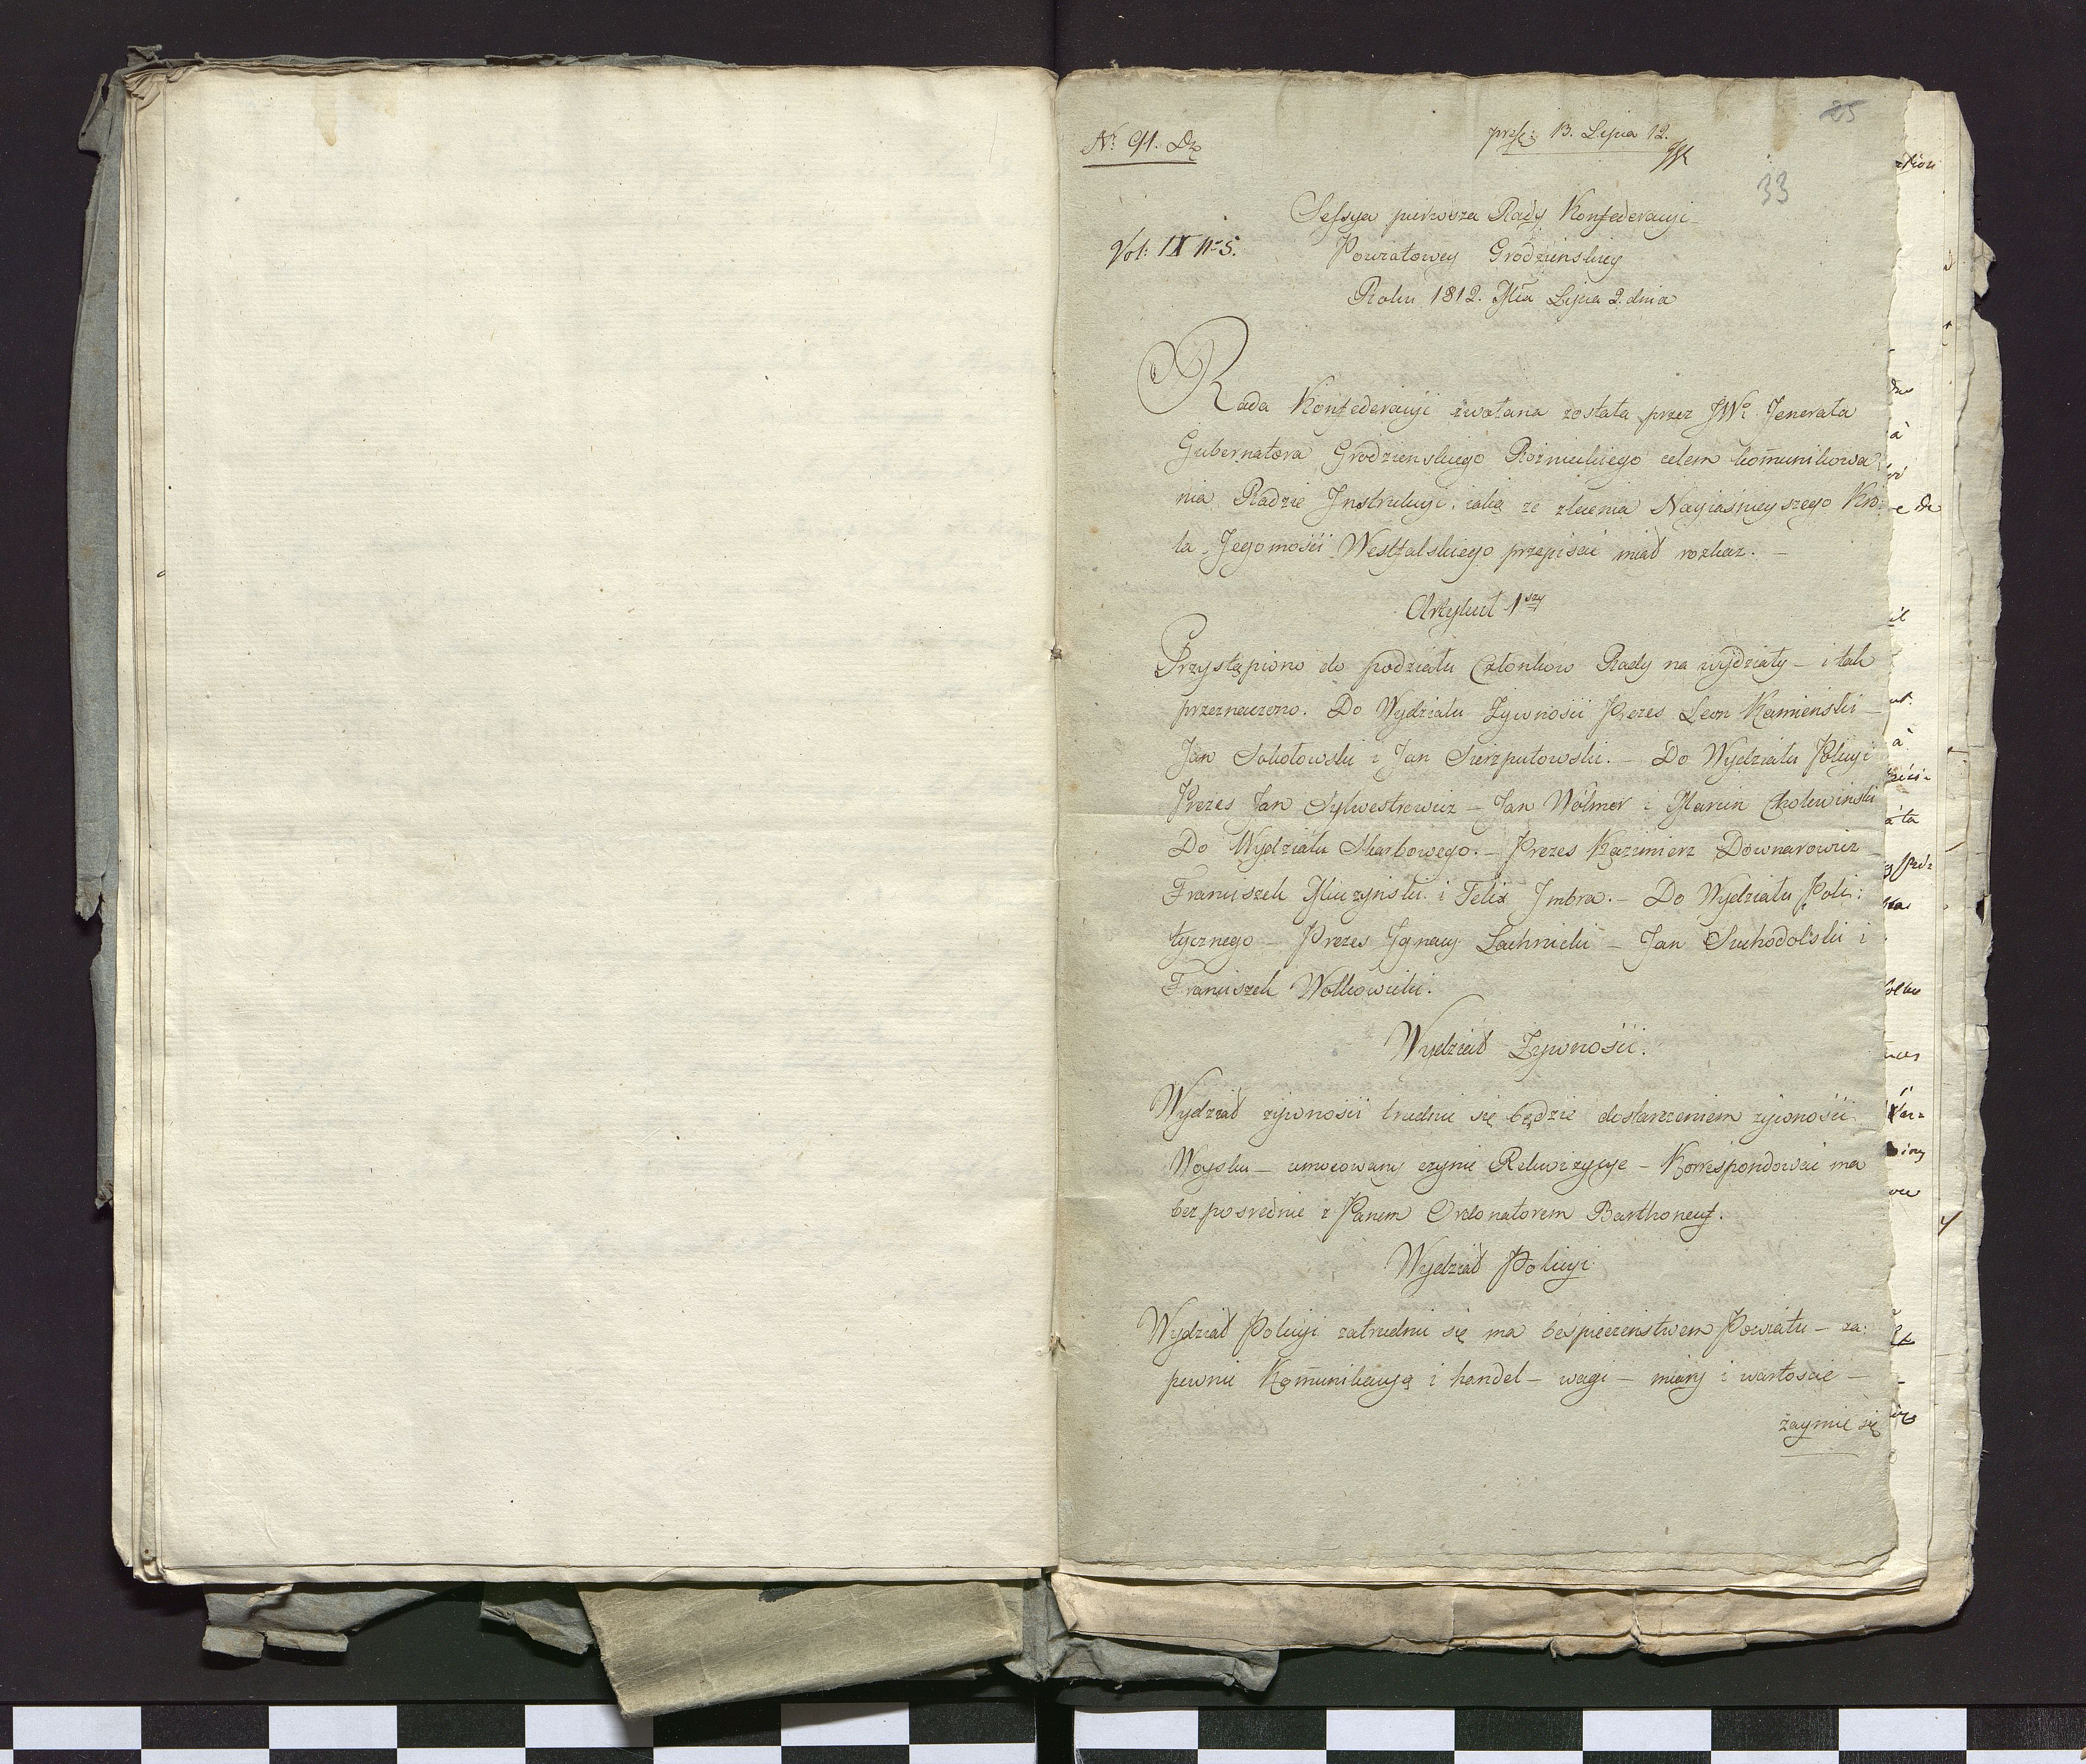 25
Nr 91. Dz
prez: 13. Lipca 12.
33
Sessya pierwsza Rady Konfederacyi
Vol: IX Nro 5.
Powiatowey Grodzieńskiey
Roku 1812. Mca Lipca 2. dnia
Rada Konfederacyi zwołana została przez JWo Jenerała
Gubernatora Grodzienskiego Rożnieckiego celem kom̄unikowa
nia Radzie Instrukcyi, iaką ze zlecenia Nayiaśnieyszego Kró:
la Jegomości Westfalskiego przepisać miał rozkaz. –
Artykuł 1szy
Przystąpiono do podziału Członków Rady na wydziały – i tak
przeznaczono. Do Wydziału Żywności Prezes Leon Kamieński –
Jan Sokołowski i Jan Sierzputowski. – Do Wydziału Policyi
Prezes Jan Sylwestrowicz – Jan Wólmer i Marcin Cholewiński
Do Wydziału Skarbowego. – Prezes Kazimierz Downarowicz
Franciszek Muczyński i Felix Imbra. – Do Wydziału Poli:
tycznego – Prezes Ignacy Lachnicki – Jan Suchodolski i
Franciszek Wołkowicki.
Wydział Żywności.
Wydział żywności trudnić się będzie dostarczeniem żywności
Woysku – umocowany czynić Rekwizycye – Korrespondować ma
bezposrednie z Panem Ordonatorem Barthoneuf.
Wydział Policyi
Wydział Policyi zatrudnić się ma beśpieczeństwem Powiatu – za:
pewnić Kom̄unikacyą i handel – wagi – miary i wartoscie –
zaymie się